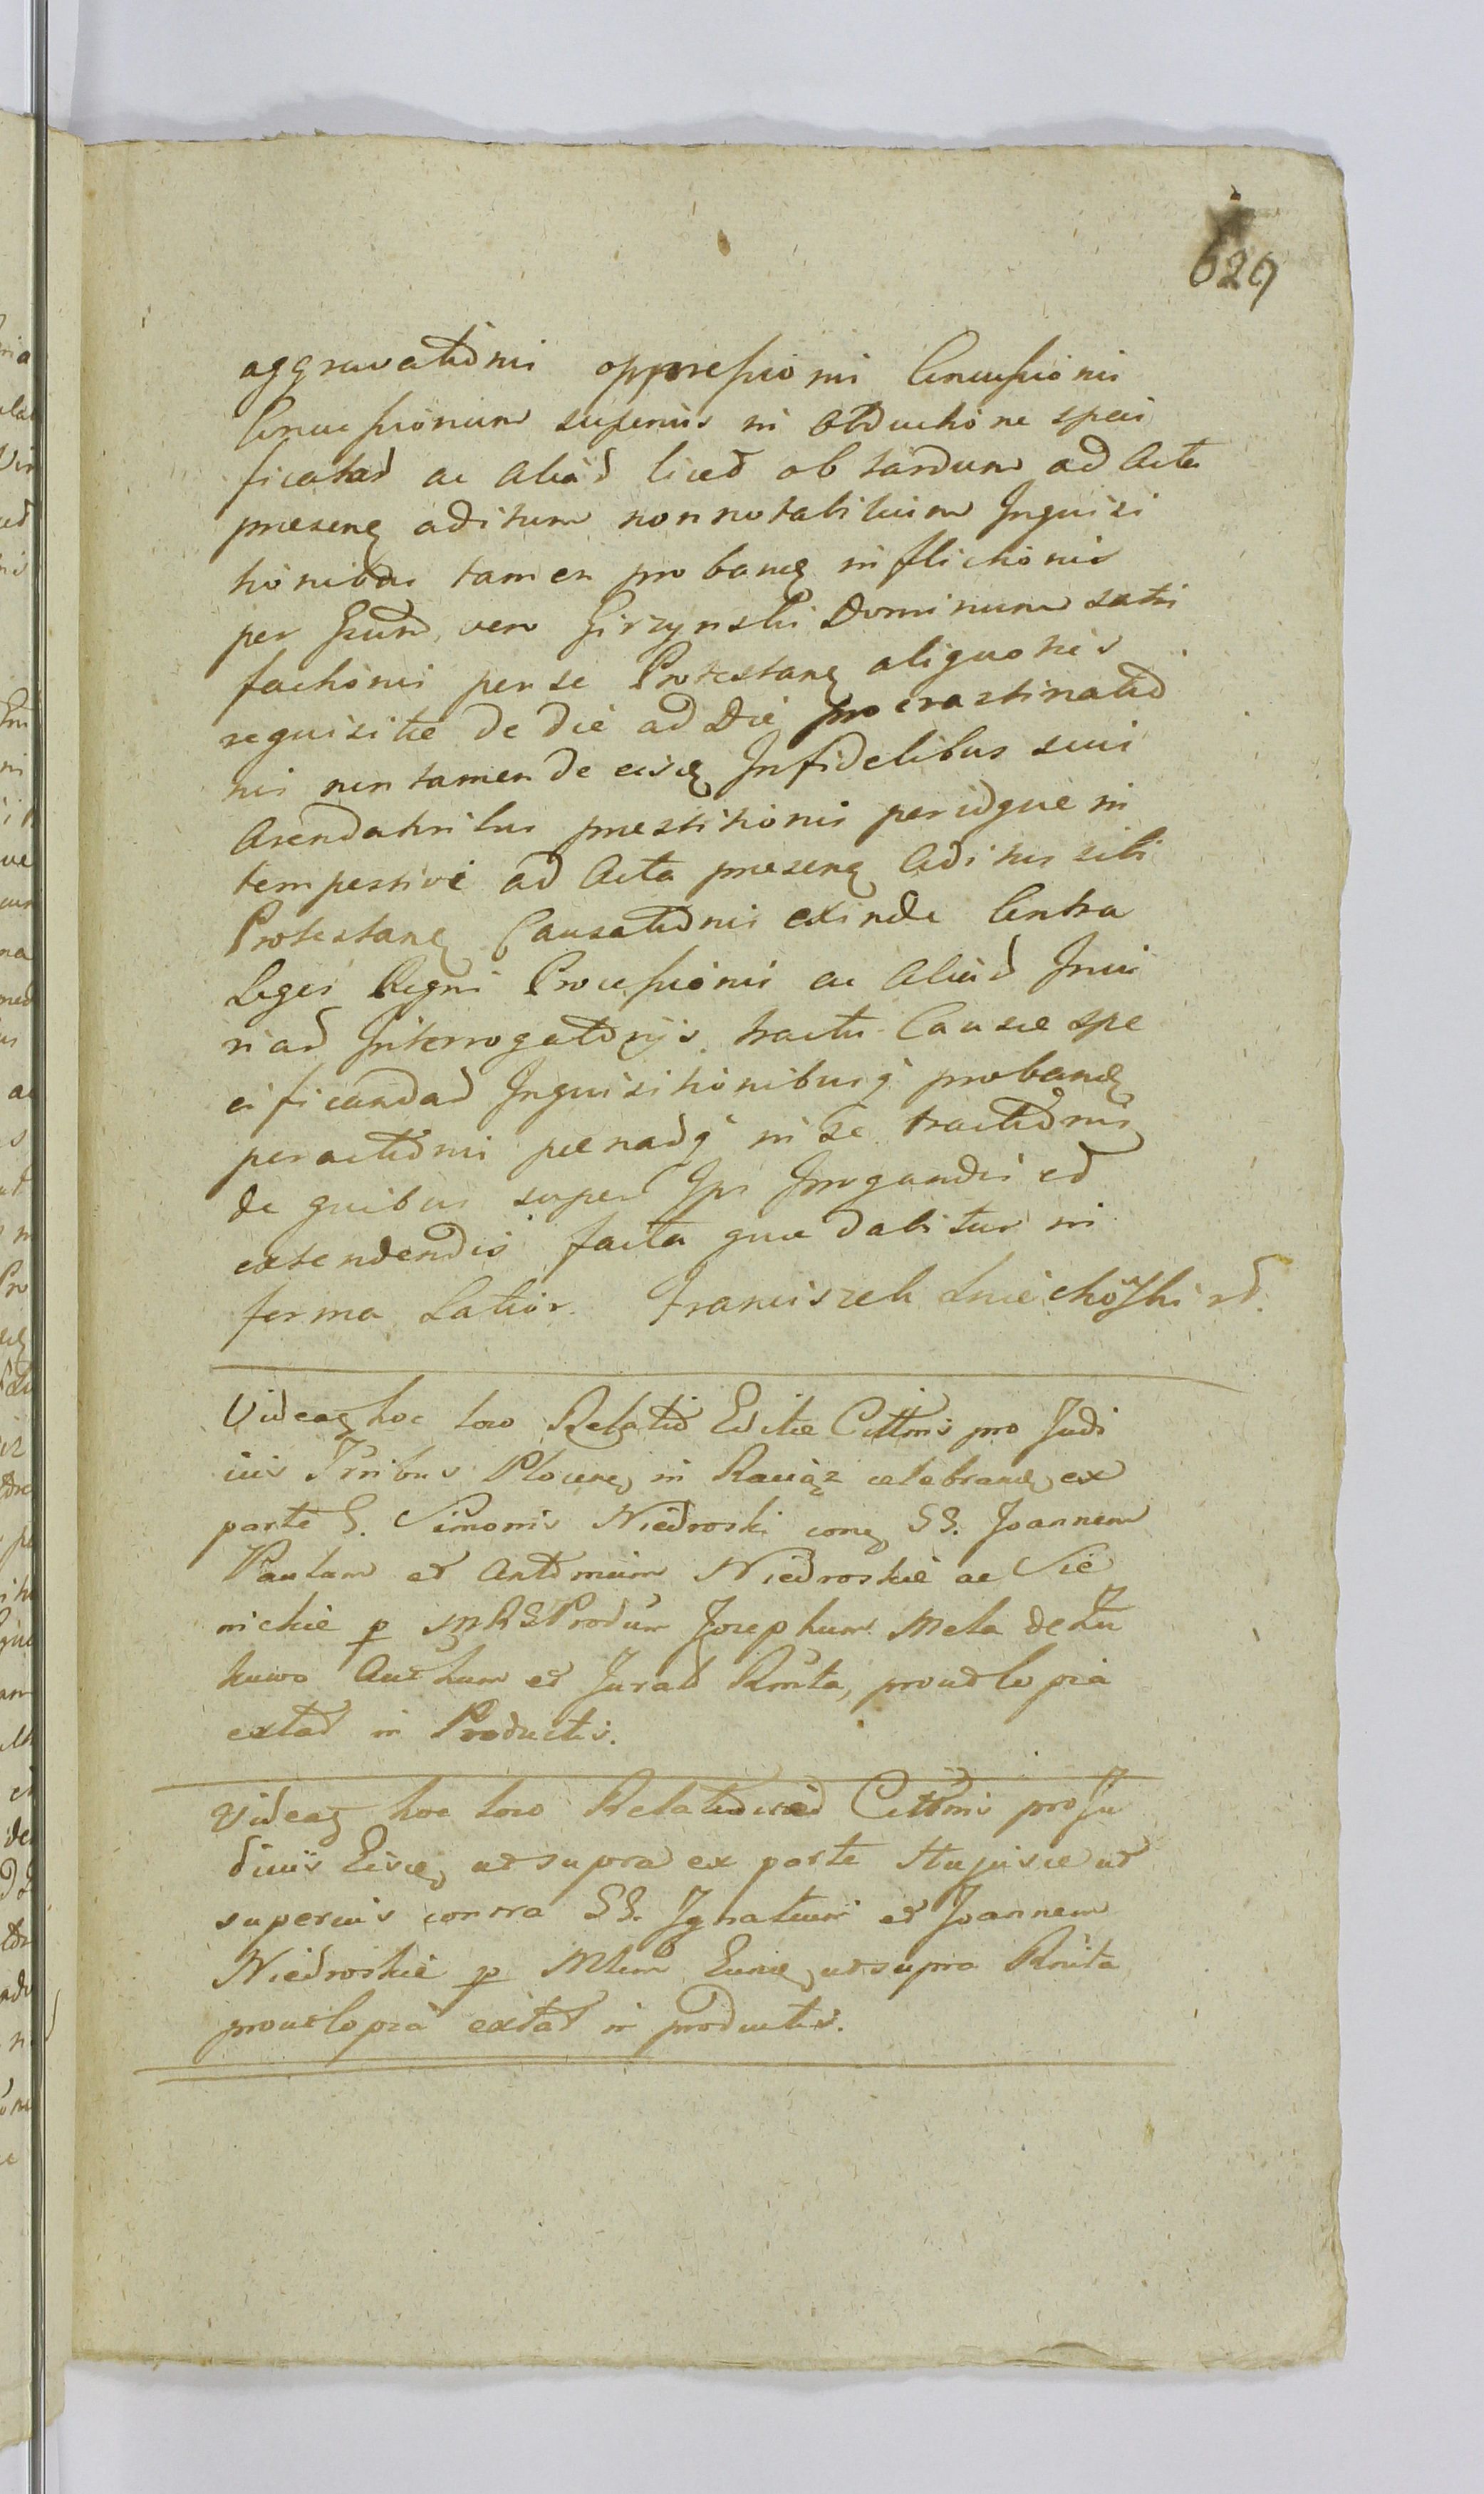 629
aggravationis oppressionis Concussionis
Concussionum superius in Obductione speci
ficatad ac aliad licet ob tardum ad Acta
præsenę aditum non notabilium Inquisi
tionibus tamen probandę inflictionis
per Eund. vero Girzynski Dominum satis
factionis per se Protestanę aliquoties
requisitæ de die ad Die procrastinatio
nis non tamen de eisdę Infidelibus suis
Arendatoribus præstitionis peridque in
tempestivi ad Acta præsenę Aditus sibi
Protestanę Causationis exinde Contra
Leges Regni Processionis ac aliad Iniu
riad Interrogatorijs tractu Causæ spe
cificandad Inquisitionibusq probandę
peractionis pænadq in se tractionis
de quibus super Ips Irrogandis et
extendendis facta quæ dabitur in
forma Latior. Franciszek
Videaę hoc loco Relatio Editæ Cittonis pro Judi
ciis Trribus Plocenę in Raciąż celebrandę ex
parte G. Simonis Niedroski conę GG. Joannem
Paulum et Antonium Niedroskie ac Sie
nickie p Josephum Mela de Łu
kowo Authum et Jurat Rnita, prout Copia
extat in Productis.
Videaę hoc loco Relatio Cittonis pro Ju
diciis Eisdę ut supra ex parte ut
superius contra GG. Ignatium et Joannem
Niedroskie p Mlem Eundę ut supra Rnita
prout Copia extat in productis.